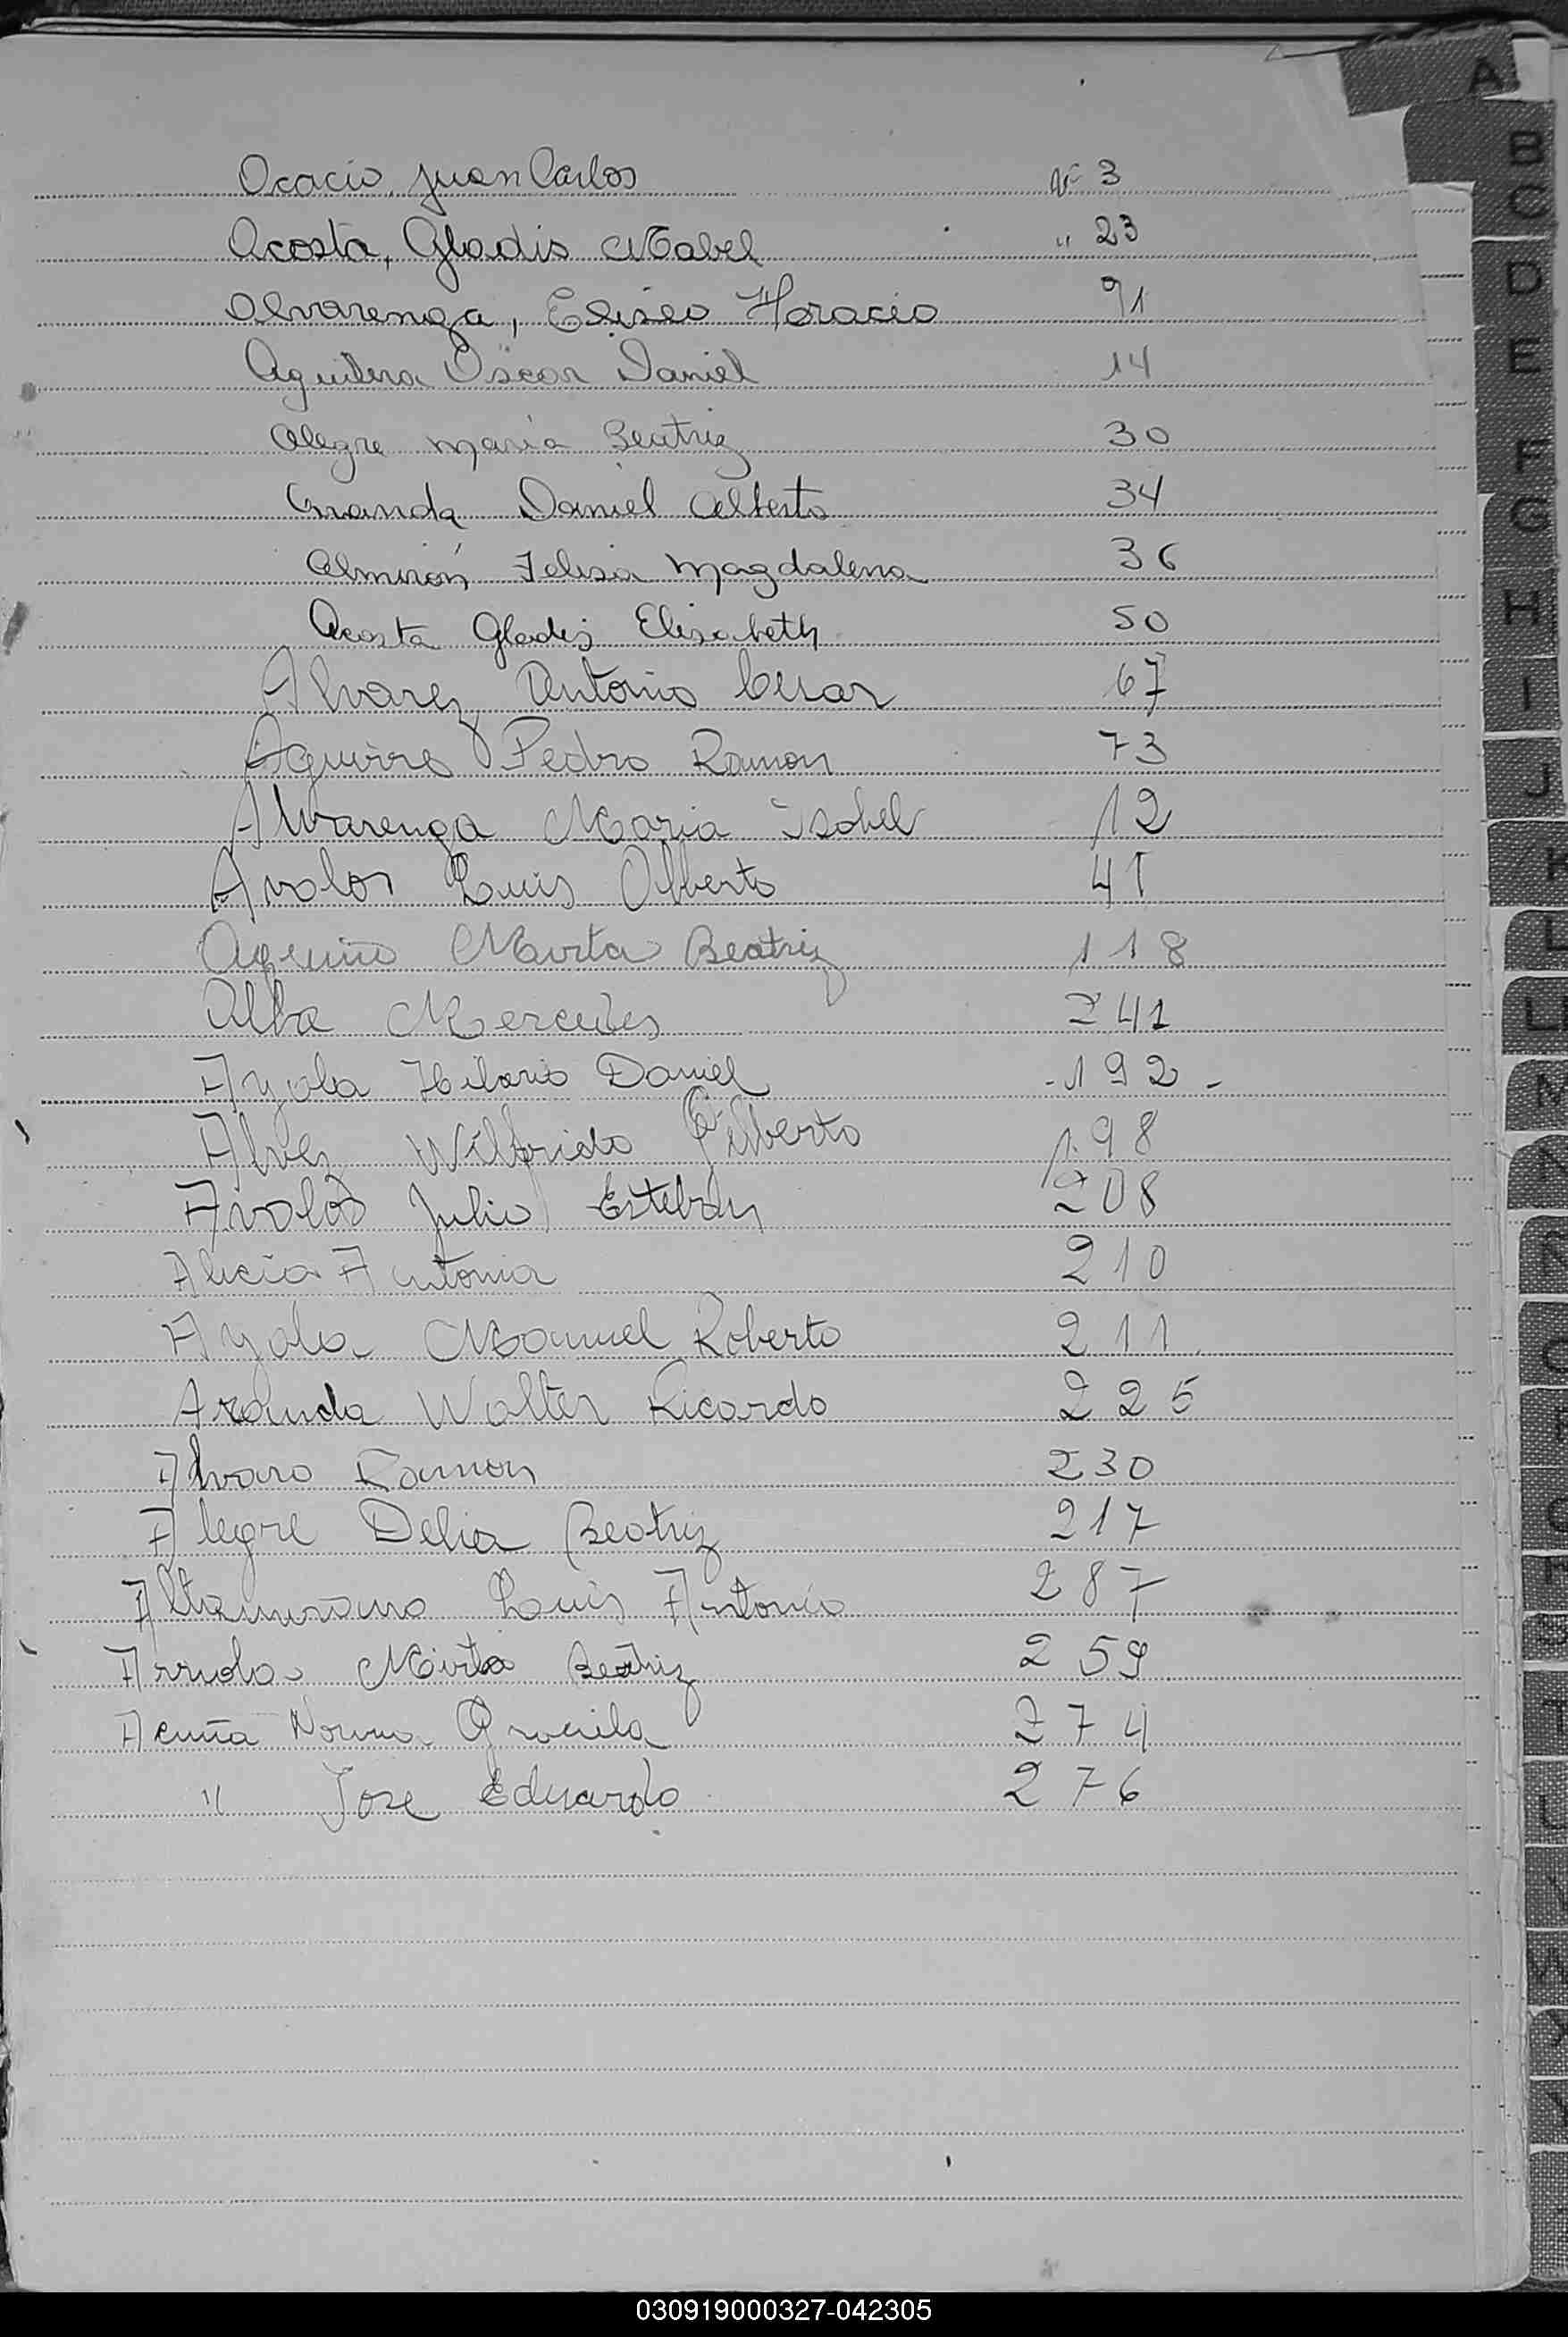 Acacio, Juan Carlos Nº 3
Acosta, Gladis Mabel " 23
Alvarenga, Eliseo Horacio 91
Aguilera Oscar Daniel 14
Alegre maria Beatriz 30
Granda Daniel Alberto 34
Almirón Felisa Magdalena 36
Acosta Gladis Elisabeth 50
Alvarez Antonio Cesar 67
Aguirre Pedro Ramon 73
Alvarenga Maria Isabel 12
Avalos Luis Alberto 41
Aquino Mirta Beatriz 118
Alba Mercedes 241
Ayala Hilario Daniel -192-
Alvez Wilfrido Gilberto 198
Avalos Julio Esteban 208
Alicia Antonia 210
Ayala Manuel Roberto 211
Aranda Walter Ricardo 225
Alvaro Ramon 230
Alegre Delia Beatriz 217
Altamirano Luis Antonio 287
Arriola Mirta Beatriz 259
Acuña Norma 274
" Jose Eduardo 276
A
B
C
D
E
F
G
H
I
J
K
L
N
030919000327-042305